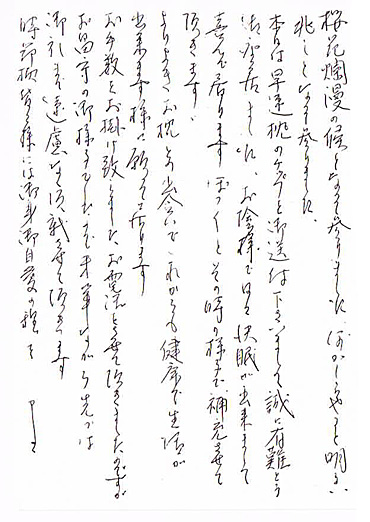 桜花爛漫の候となって参りました。何かしら心も明るい
兆しとなって参りました。
本日は早速枕のケアを御送付下さいまして誠に有難とう
御座居ました。お陰様で日々快眠が出来まして
喜んで居ります その時の様まで、補充させて
頂きます。
よりよきお枕とお蔭でこれからも健康で生活が
出来ます様に願って居ります
お手数をお掛け致しましたお電話を頂きましたのですが
お留守の御様子でしたので 略筆ながら先づは
御礼まで 遠慮なく頂戴させて頂きます
時節柄皆々様には御身御自愛の程を